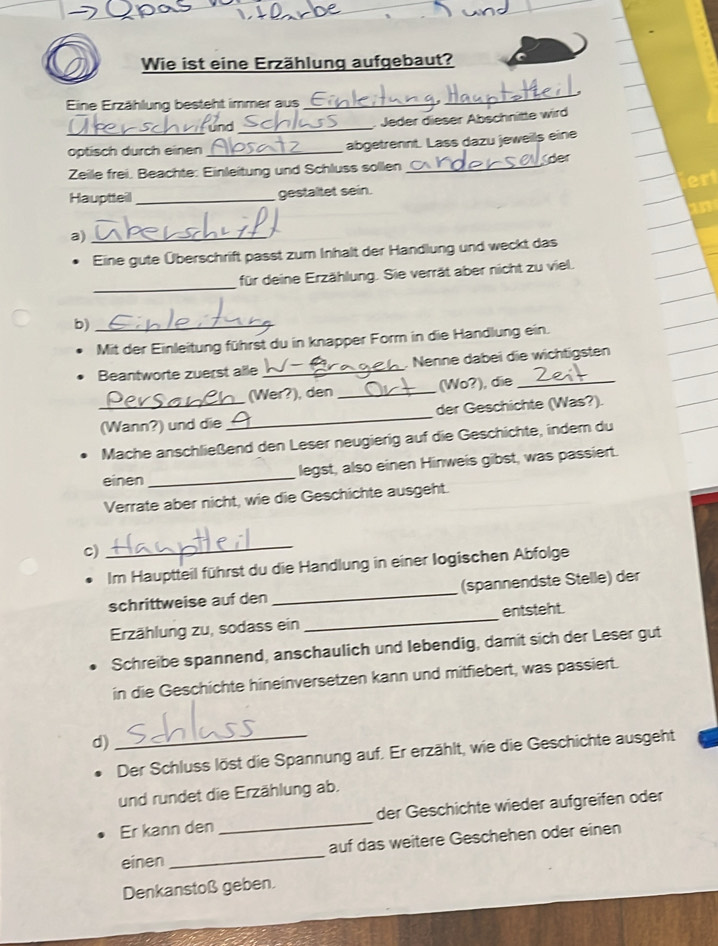 → Opas
und
Wie ist eine Erzählung aufgebaut?
Eine Erzählung besteht immer aus Einleitung, Hauptteil,
Überschrift und Schluss. Jeder dieser Abschnitte wird
optisch durch einen Absatz abgetrennt. Lass dazu jeweils eine
Zeile frei. Beachte: Einleitung und Schluss sollen anders als der
Hauptteil ____________ gestaltet sein.
a) Überschrift
• Eine gute Überschrift passt zum Inhalt der Handlung und weckt das
____________ für deine Erzählung. Sie verrät aber nicht zu viel.
b) Einleitung
• Mit der Einleitung führst du in knapper Form in die Handlung ein.
• Beantworte zuerst alle W-Fragen. Nenne dabei die wichtigsten
Personen (Wer?), den Ort (Wo?), die Zeit
(Wann?) und die A____________ der Geschichte (Was?).
• Mache anschließend den Leser neugierig auf die Geschichte, indem du
einen ____________ legst, also einen Hinweis gibst, was passiert.
Verrate aber nicht, wie die Geschichte ausgeht.
c) Hauptteil
• Im Hauptteil führst du die Handlung in einer logischen Abfolge
schrittweise auf den ____________ (spannendste Stelle) der
Erzählung zu, sodass ein ____________ entsteht.
• Schreibe spannend, anschaulich und lebendig, damit sich der Leser gut
in die Geschichte hineinversetzen kann und mitfiebert, was passiert.
d) Schluss
• Der Schluss löst die Spannung auf. Er erzählt, wie die Geschichte ausgeht
und rundet die Erzählung ab.
• Er kann den ____________ der Geschichte wieder aufgreifen oder
einen ____________ auf das weitere Geschehen oder einen
Denkanstoß geben.